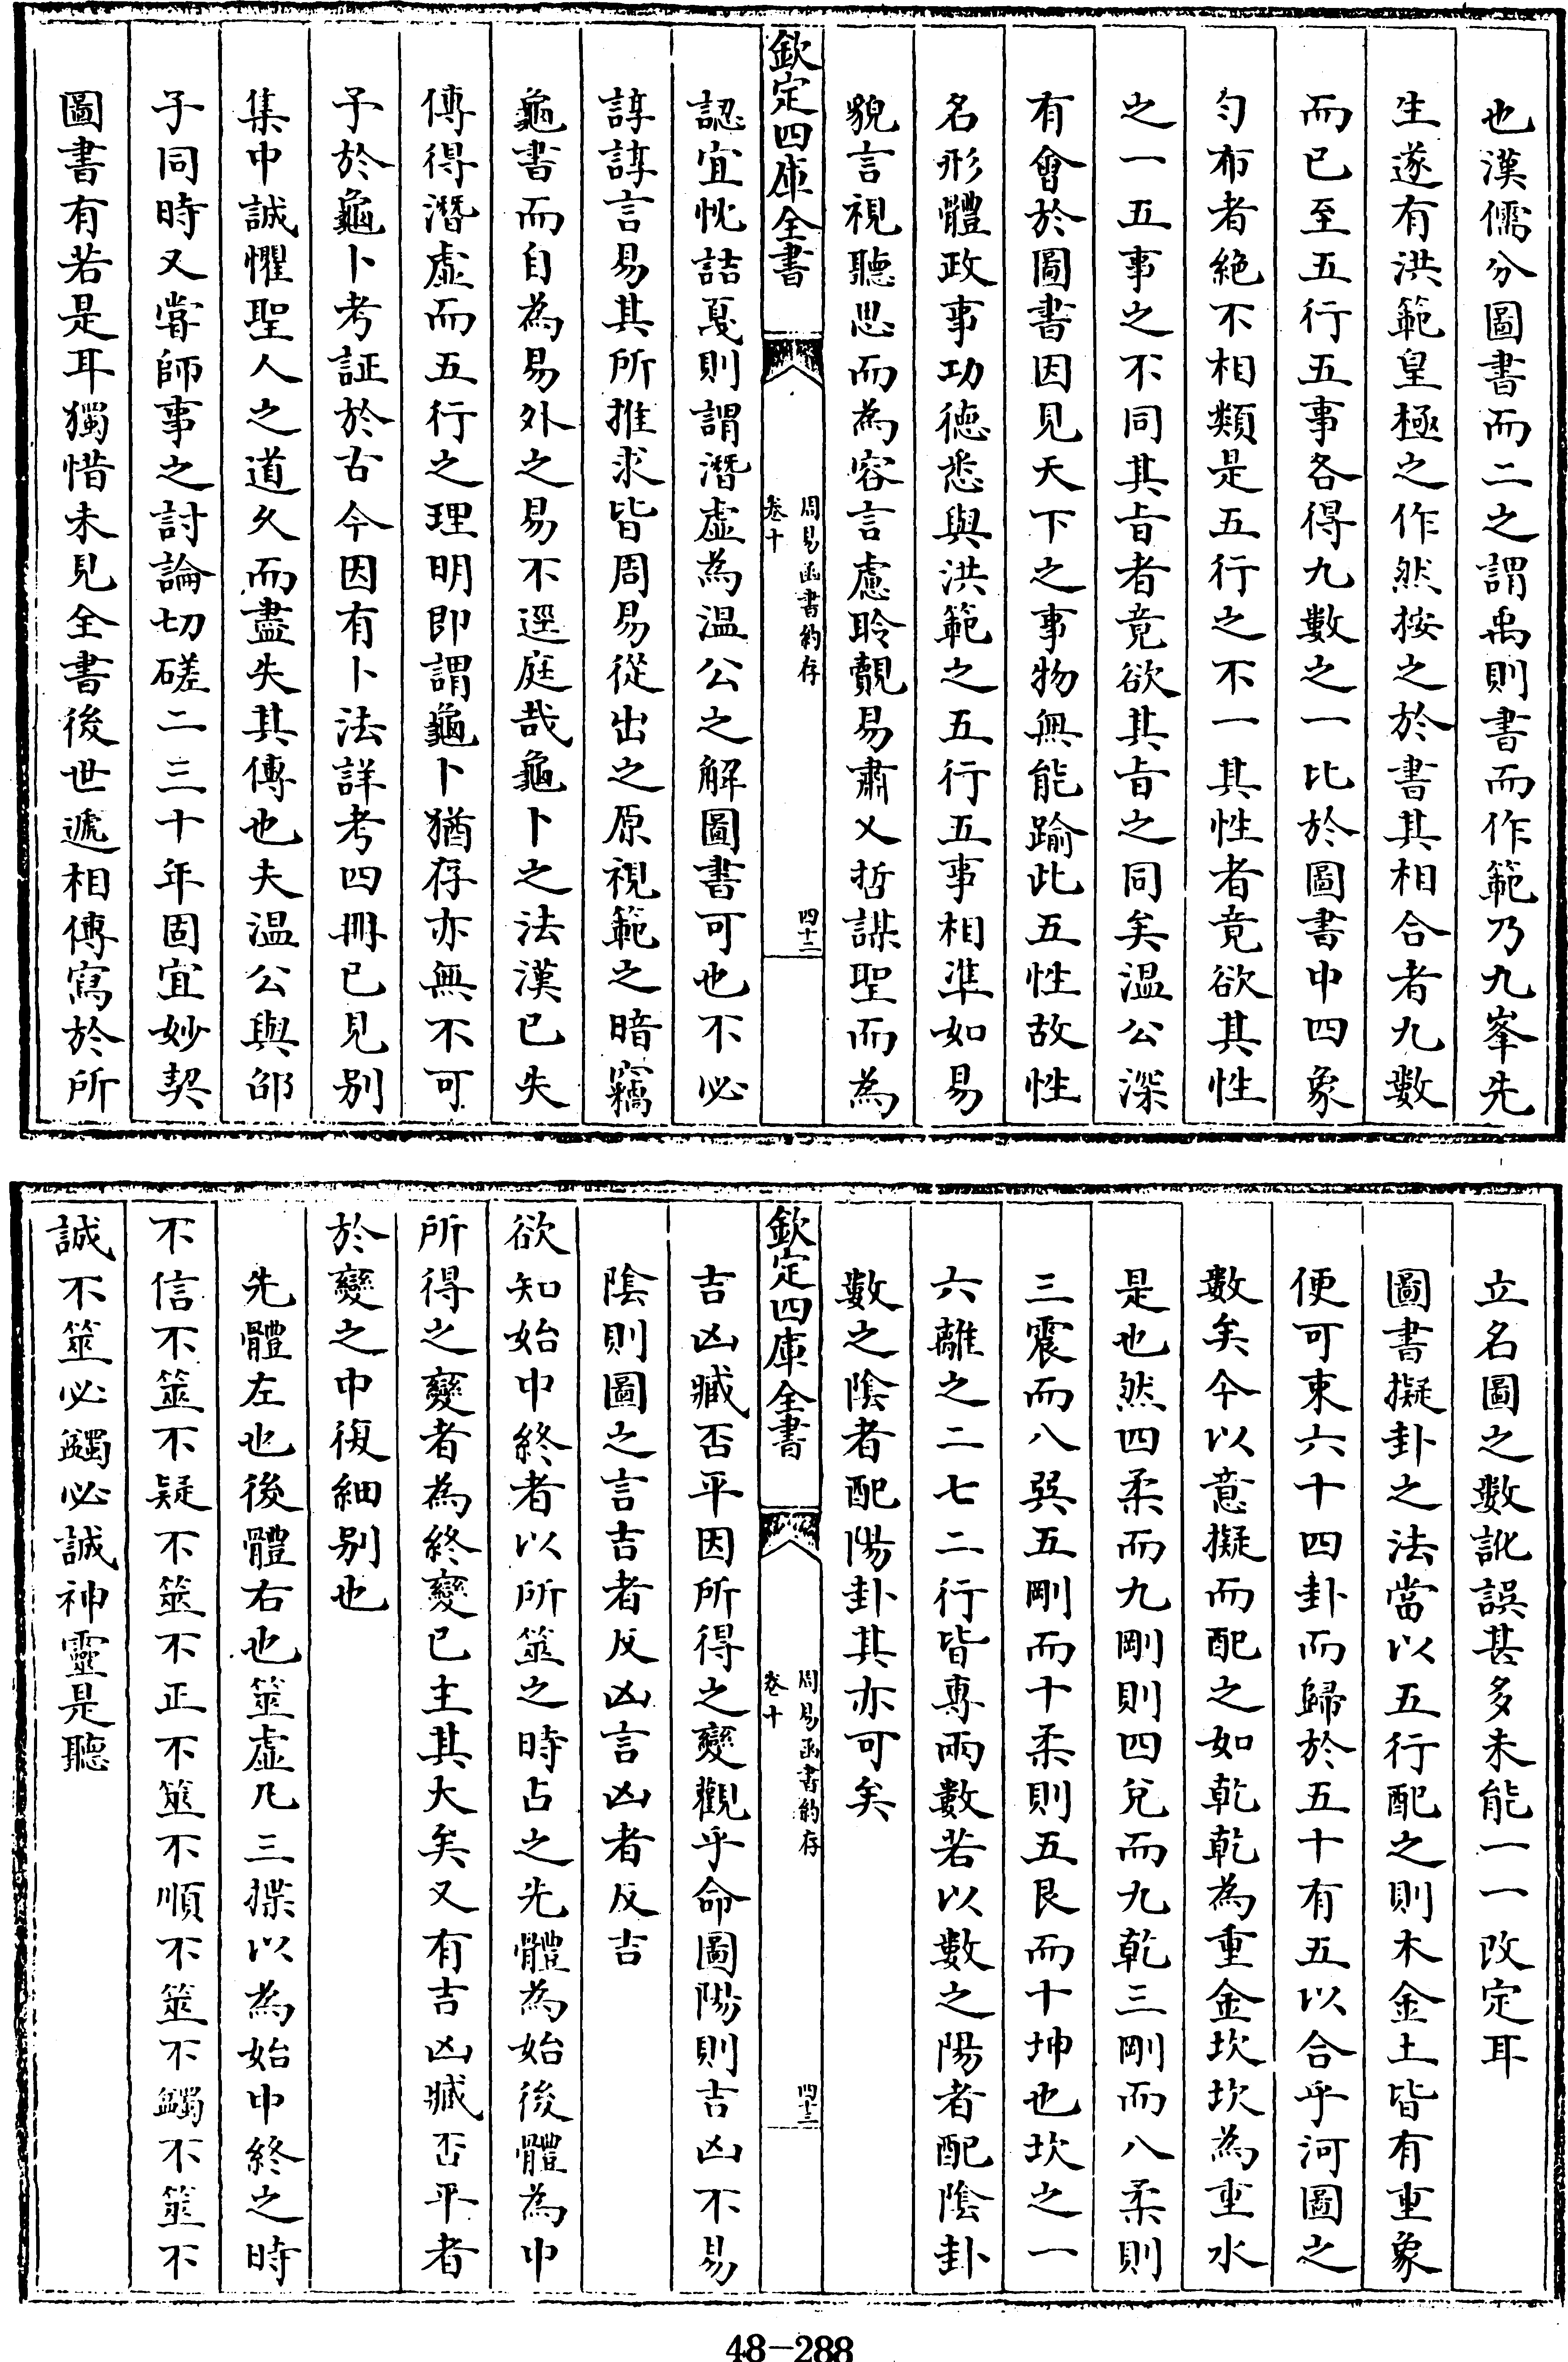 也漢儒分圖書而二之謂禹則書而作範乃九峯先
生遂有洪範皇極之作然按之於書其相合者九數
而已至五行五事各得九數之一比於圖書中四象
勻布者絶不相類是五行之不一其性者竟欲其性
之一五事之不同其㫖者竟欲其㫖之同矣温公深
有會於圖書因見天下之事物無能踰此五性故性
名形體政事功德悉與洪範之五行五事相凖如易
貌言視聽思而為容言慮聆覿易肅乂哲謀聖而為
欽定四庫全書
周易函書約存
卷十
四十二
認宜忱喆戛則謂潛虛為温公之解圖書可也不必
諄諄言易其所推求皆周易從出之原視範之暗竊
龜書而自為易外之易不逕庭哉龜卜之法漢已失
傳得潛虛而五行之理明即謂龜卜猶存亦無不可
予於龜卜考証於古今因有卜法詳考四冊已見别
集中誠懼聖人之道久而盡失其傳也夫温公與邵
子同時又嘗師事之討論切磋二三十年固宜妙契
圖書有若是耳獨惜未見全書後世遞相傳寫於所
立名圖之數訛誤甚多未能一一改定耳
圖書擬卦之法當以五行配之則木金土皆有重象
便可束六十四卦而歸於五十有五以合乎河圖之
數矣今以意擬而配之如乾乾為重金坎坎為重水
是也然四柔而九剛則四兌而九乾三剛而八柔則
三震而八巽五剛而十柔則五艮而十坤也坎之一
六離之二七二行皆專兩數若以數之陽者配陰卦
數之陰者配陽卦其亦可矣
欽定四庫全書
周易函書約存
卷十
四十三
吉凶臧否平因所得之變觀乎命圖陽則吉凶不易
陰則圖之言吉者反凶言凶者反吉
欲知始中終者以所筮之時占之先體為始後體為中
所得之變者為終變已主其大矣又有吉凶臧否平者
於變之中復細别也
先體左也後體右也筮虛凡三揲以為始中終之時
不信不筮不疑不筮不正不筮不順不筮不蠲不筮不
誠不筮必蠲必誠神靈是聽
48-288